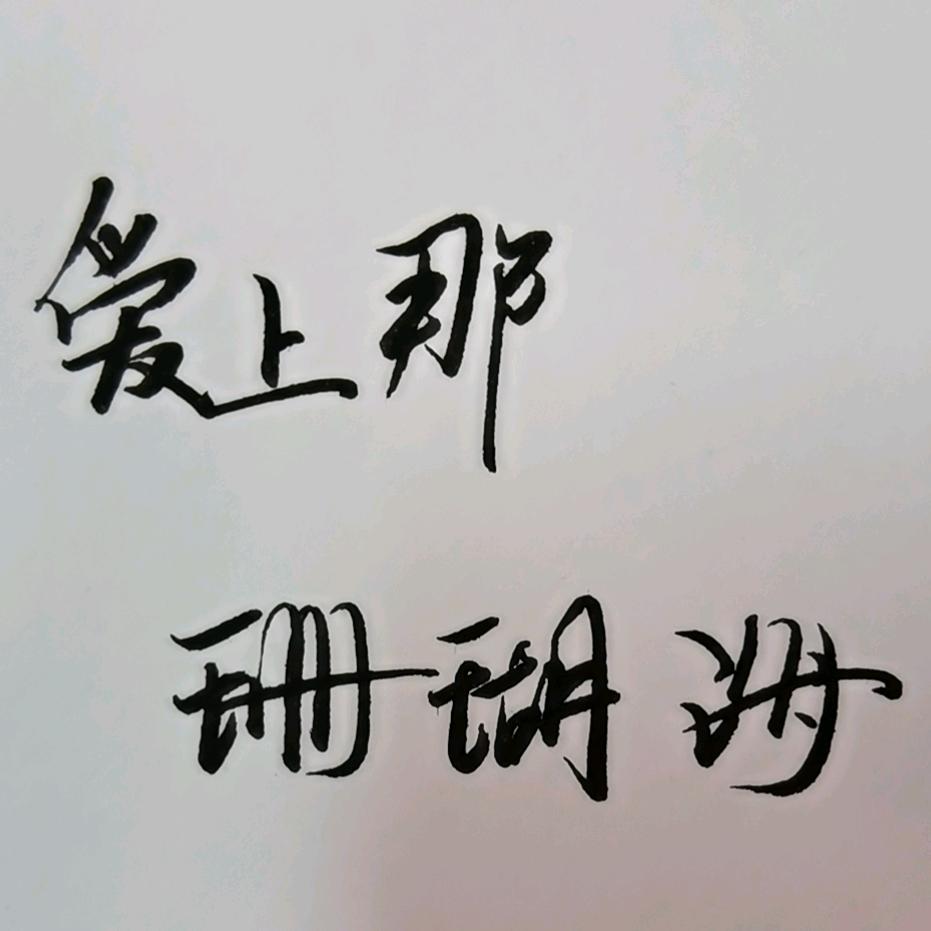 爱上那
珊瑚海